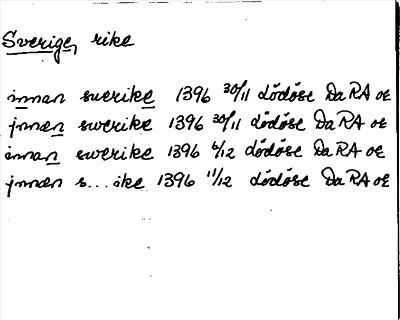 Sverige, rike
innan suerike 1396 30/11 Lödöse Da RA or
jnnæn swerike 1396 30/11 Lödöse Da RA or
innan swerike 1396 6/12 Lödöse Da RA or
jnnæn s...ike 1396 11/12 Lödöse Da RA or